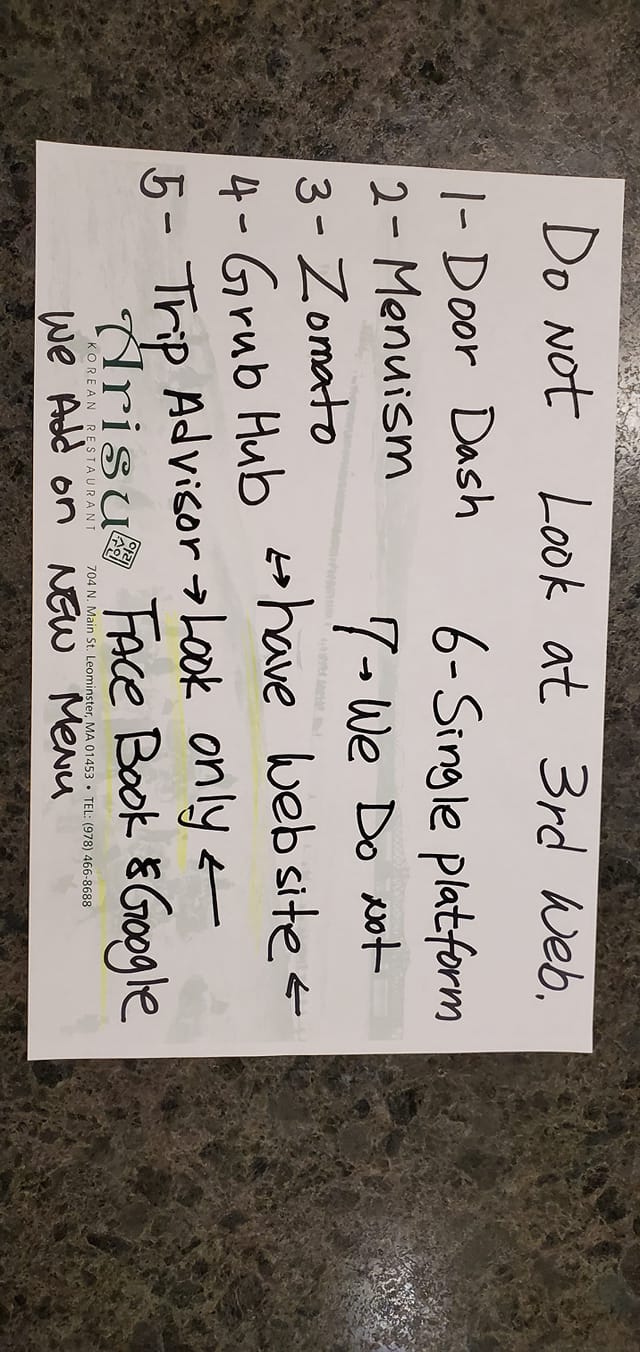 Do Not Look at 3rd Web.
1- Door Dash 6- Single platform
2- Menuism 7→ We Do not
3- Zomato ↔ have website ←
4- Grub Hub
5- Trip Advisor → Look only ←
Face Book & Google
Arisu 아리수인
KOREAN RESTAURANT 704 N. Main St. Leominster, MA 01453 • TEL: (978) 466-8688
We Add on New Menu